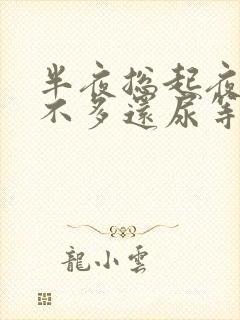 半夜总起夜
不多還尿等
龍小雲